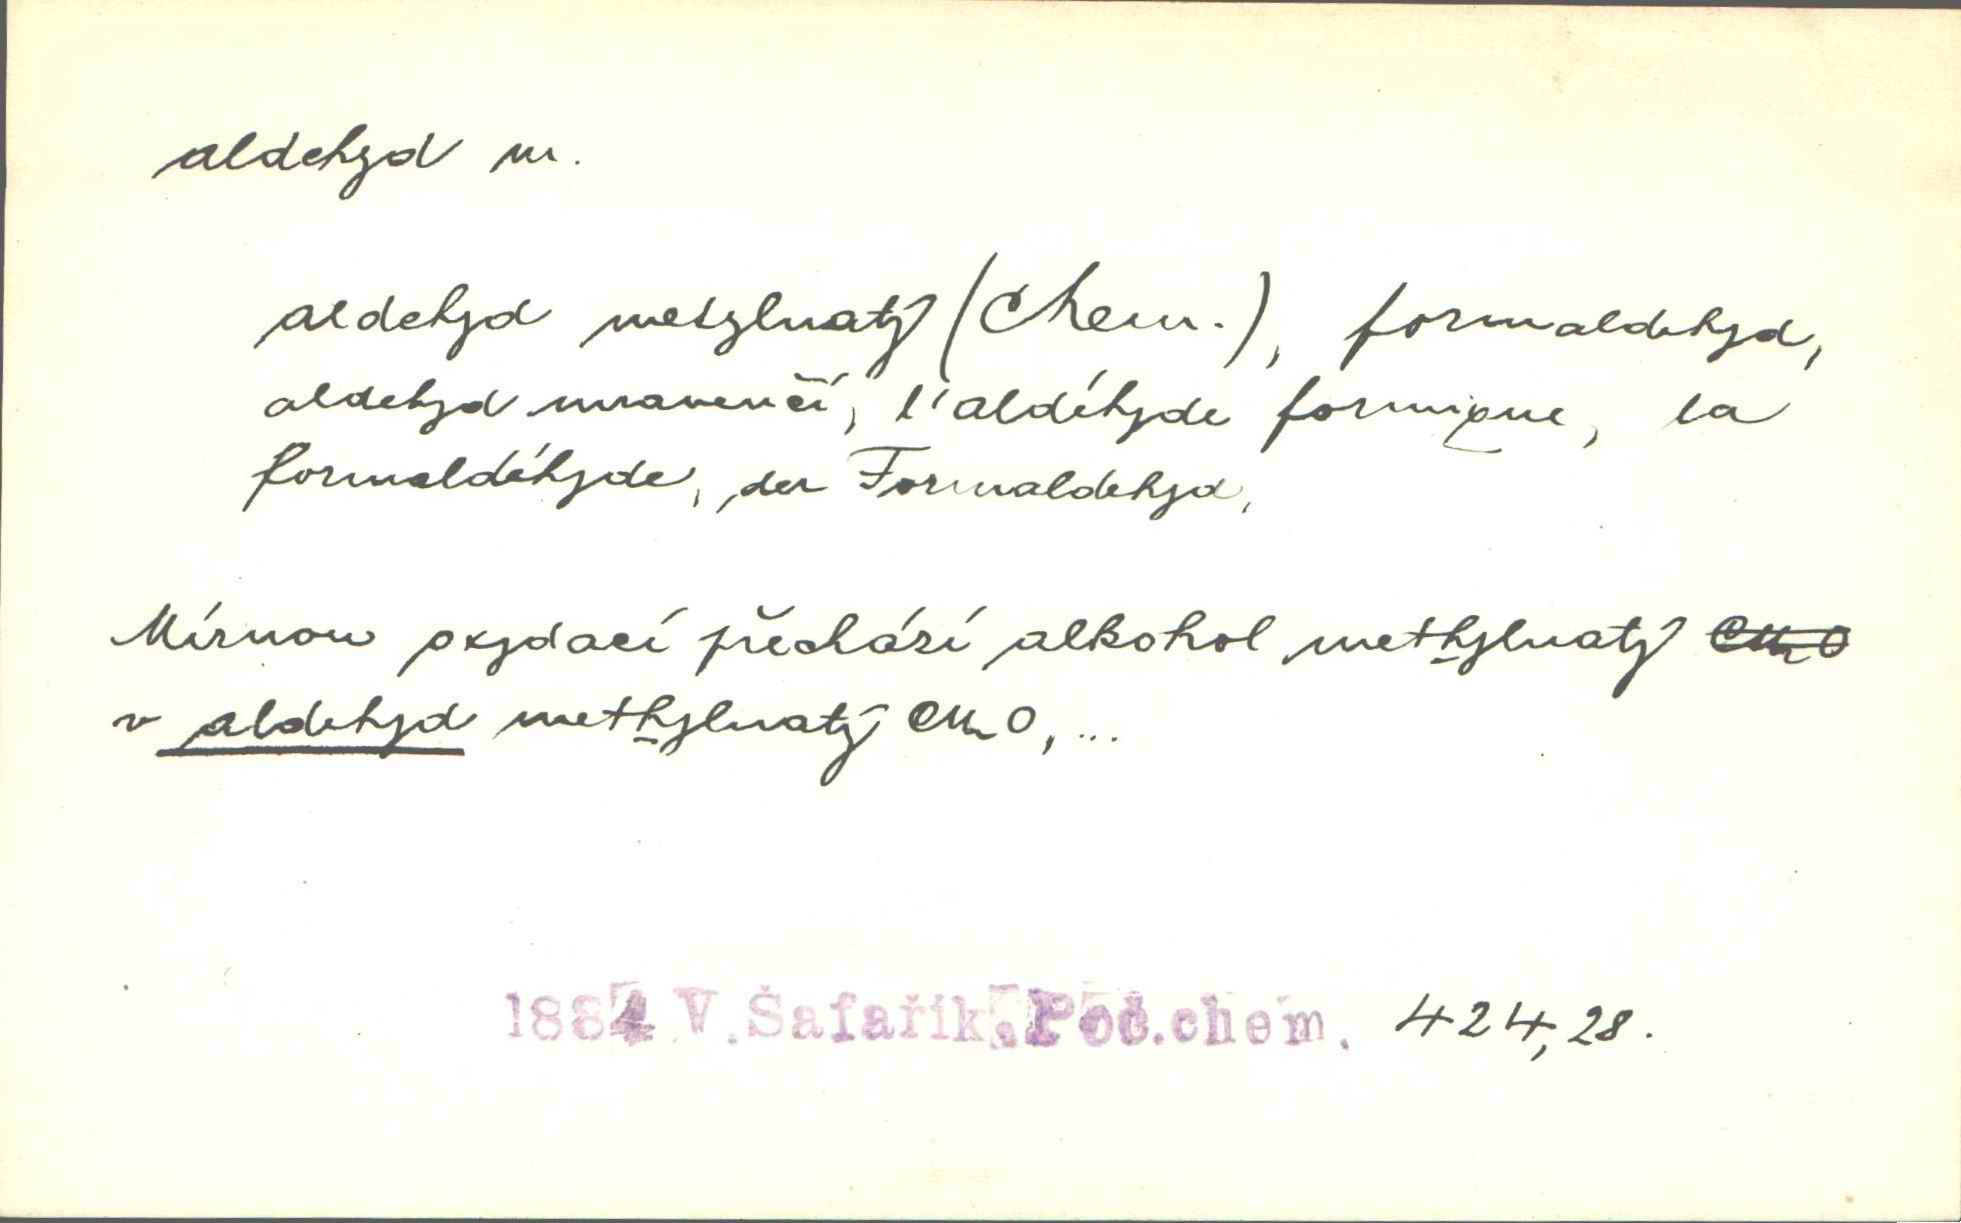 aldehyd m.
aldehyd metylnatý (Chem.), formaldehyd,
aldehyd mravenčí, l'aldéhyde formique, la
formaldéhyde, der Formaldehyd,
Mírnou oxydací přechází alkohol methylnatý CH₂O
v aldehyd methylnatý CH₂O, ...
1884 V. Šafařík. Poč. chem. 424, 28.